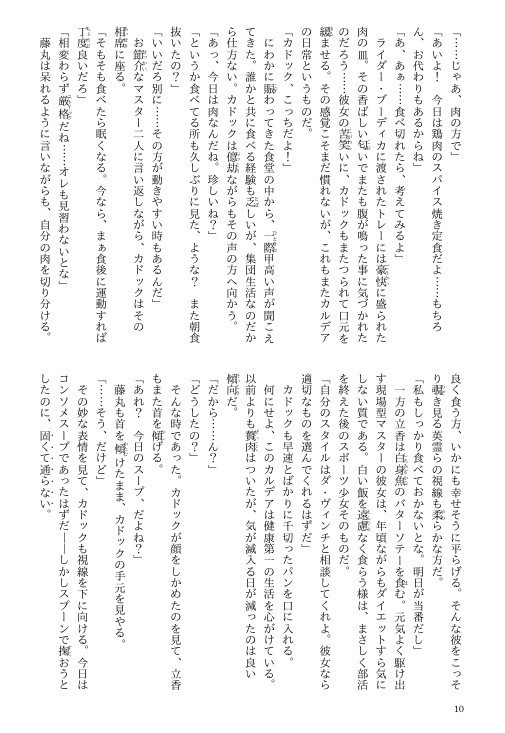 「……じゃあ、肉の方で」
「あいよ！　今日は鶏肉のスパイス焼き定食だよ……もちろ
ん、お代わりもあるからね」
「あ、あぁ……食べ切れたら、考えてみるよ」
　ライダー・ブーディカに渡されたトレーには豪快に盛られた
肉の皿。その香ばしい匂いでまたも腹が鳴った事に気づかれた
のだろう……彼女の苦笑いに、カドックもまたつられて口元を
緩ませる。その感覚こそまだ慣れないが、これもまたカルデア
の日常というものだ。
「カドック、こっちだよー！」
　にわかに賑わってきた食堂の中から、一際甲高い声が聞こえ
てきた。誰かと共に食べる経験も乏しいが、集団生活なのだか
ら仕方ない。カドックは億劫ながらもその声の方へ向かう。
「あっ、今日は肉なんだね。珍しいね？」
「というか食べてる所も久しぶりに見た、ような？　また朝食
抜いたの？」
「いいだろ別に……その方が動きやすい時もあるんだ」
　お節介なマスター二人に言い返しながら、カドックはその
相席に座る。
「そもそも食べたら眠くなる。今なら、まぁ食後に運動すれば
丁度良いだろ」
「相変わらず厳格だね……オレも見習わないとな」
　藤丸は呆れるように言いながらも、自分の肉を切り分ける。
良く食う方、いかにも幸せそうに平らげる。そんな彼をこっそ
り覗き見る英霊らの視線も柔らかな方だ。
「私もしっかり食べておかないとな。明日が当番だし」
　一方の立香は白身魚のバターソテーを食む。元気よく駆け出
す現場型マスターの彼女は、年頃ながらもダイエットすら気に
しない質である。白い飯を遠慮なく食らう様は、まさしく部活
を終えた後のスポーツ少女そのものだ。
「自分のスタイルはダ・ヴィンチと相談してくれよ。彼女なら
適切なものを選んでくれるはずだ」
　カドックも早速とばかりに千切ったパンを口に入れる。
　何にせよ、このカルデアは健康第一の生活を心がけている。
以前よりも贅肉はついたが、気が滅入る日が減ったのは良い
傾向だ。
「だから……ん？」
「どうしたの？」
　そんな時であった。カドックが顔をしかめたのを見て、立香
もまた首を傾げる。
「あれ？　今日のスープ、だよね？」
　藤丸も首を傾けたまま、カドックの手元を見やる。
「……そう、だけど」
　その妙な表情を見て、カドックも視線を下に向ける。今日は
コンソメスープであったはずだ――しかしスプーンで掬おうと
したのに、固くて通らない。
10